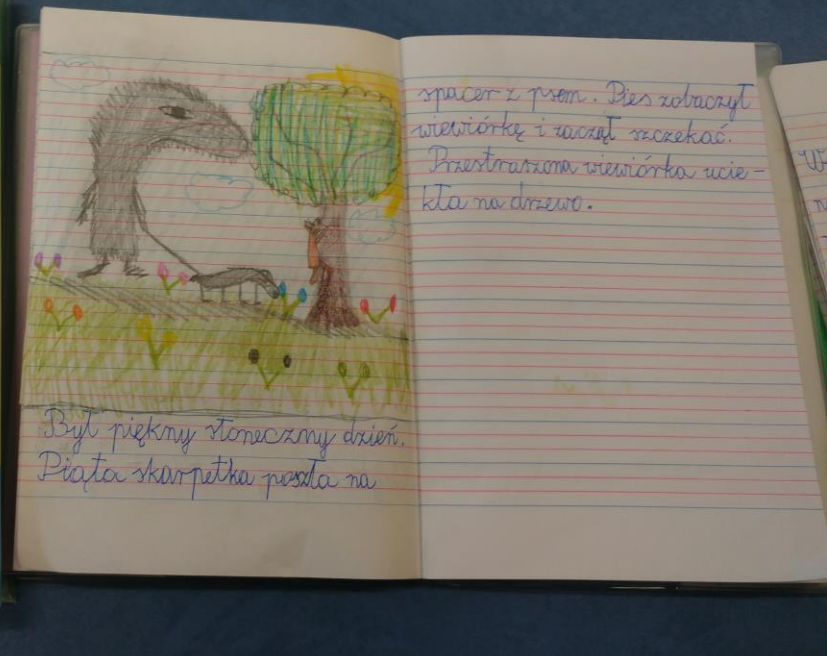 Był piękny słoneczny dzień.
Piąta skarpetka poszła na
spacer z psem. Pies zobaczył
wiewiórkę i zaczął szczekać.
Przestraszona wiewiórka ucie-
kła na drzewo.
W